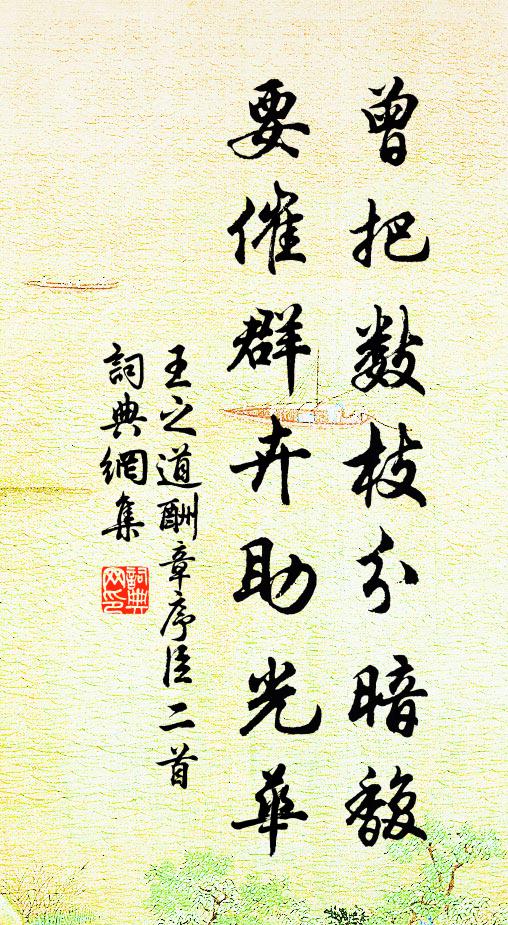 曾把数枝分暗馥
要催群卉助光華
王之道酬章序臣二首
詞典網集
詞典网印